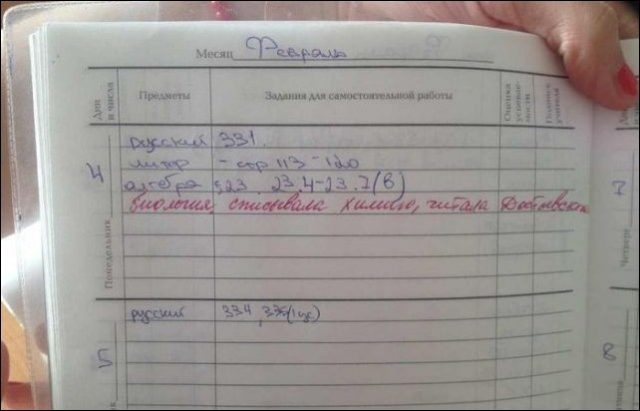 Месяц Февраль
Дни и числа Предметы Задания для самостоятельной работы Оценка успеваемости Подпись учителя
Понедельник 4
русский 331.
литер - стр 113-120
алгебра §23. 23.4-23.7(в)
Биология, списывала химию, читала Достоевского
5
русский 334, 335(1 ус)
7
Четверг
8